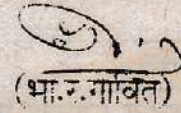 (भा.र.गावित)